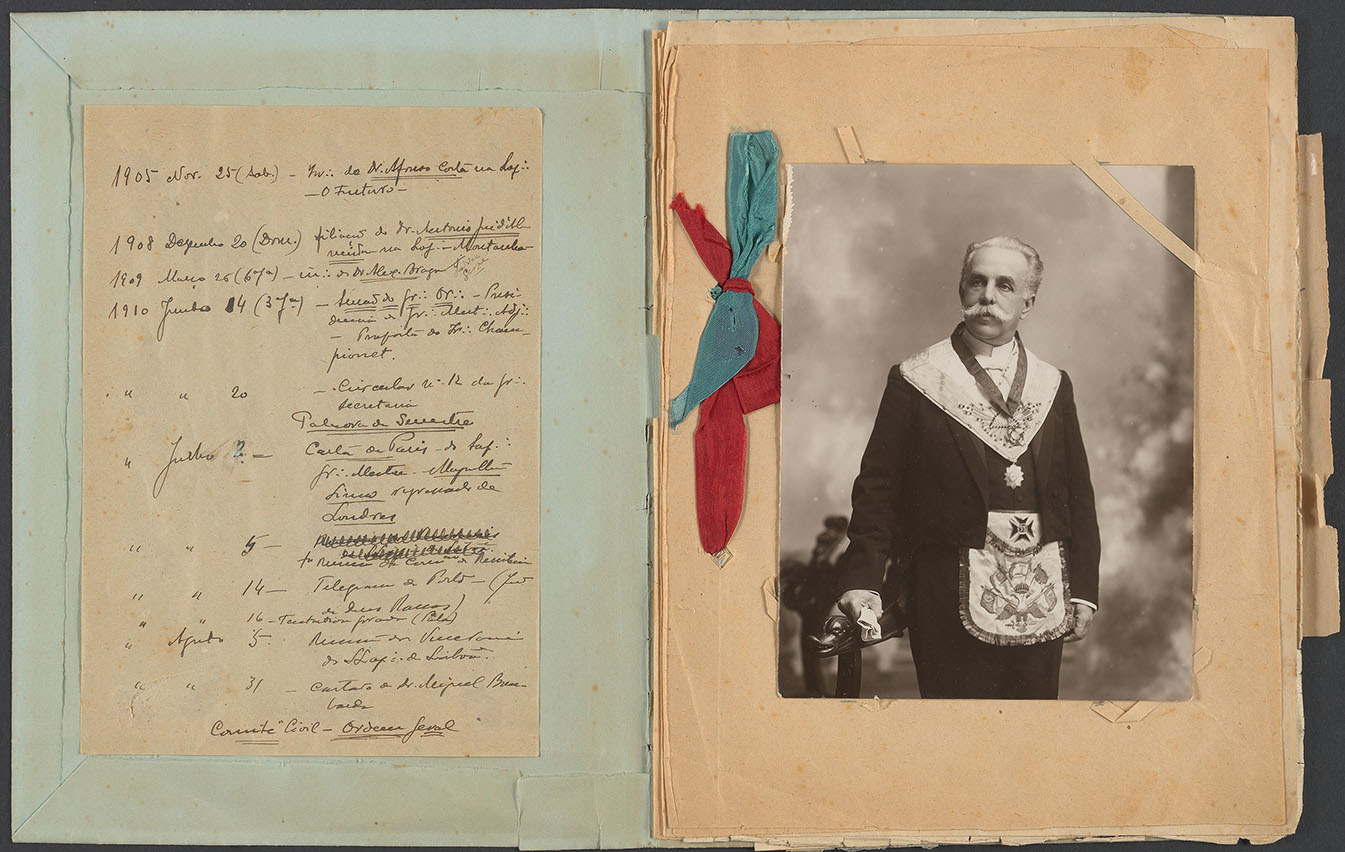 1905 Nov. 25 (Sab.) – In∴ do Dr. Afonso Costa na Loj∴
– O Futuro –
1908 Dezembro 20 (Dom.) filiação do Dr. Antonio José d'Al-
meida na Loj∴ – Montanha
1909 Março 26 (6ª fª) – in∴ do Dr. Alex. Braga
1910 Junho 14 (3ª fª) – Sessão do Gr∴ Or∴ – Presi-
dencia do Gr∴ Mest∴ Adj∴
– Proposta do Ir∴ Cham-
pionet.
" " 20 – Circular nº 12 da Gr∴
Secretaria
Palavra de Semestre
" Julho 2 – Carta de Paris do Sap∴
Gr∴ Mestre – Magalhães
Lima regressado de
Londres
" " 5 –
Reunião da Com.ão de Resistencia
" " 14 – Telegrama do Porto –
de Deus Ramos)
" " 16 –
" Agosto 5 Reunião dos Veneraveis
das LLoj∴ de Lisboa.
" " 31 – cartão do Dr. Miguel Bom-
barda
Comité Civil – Ordem Geral